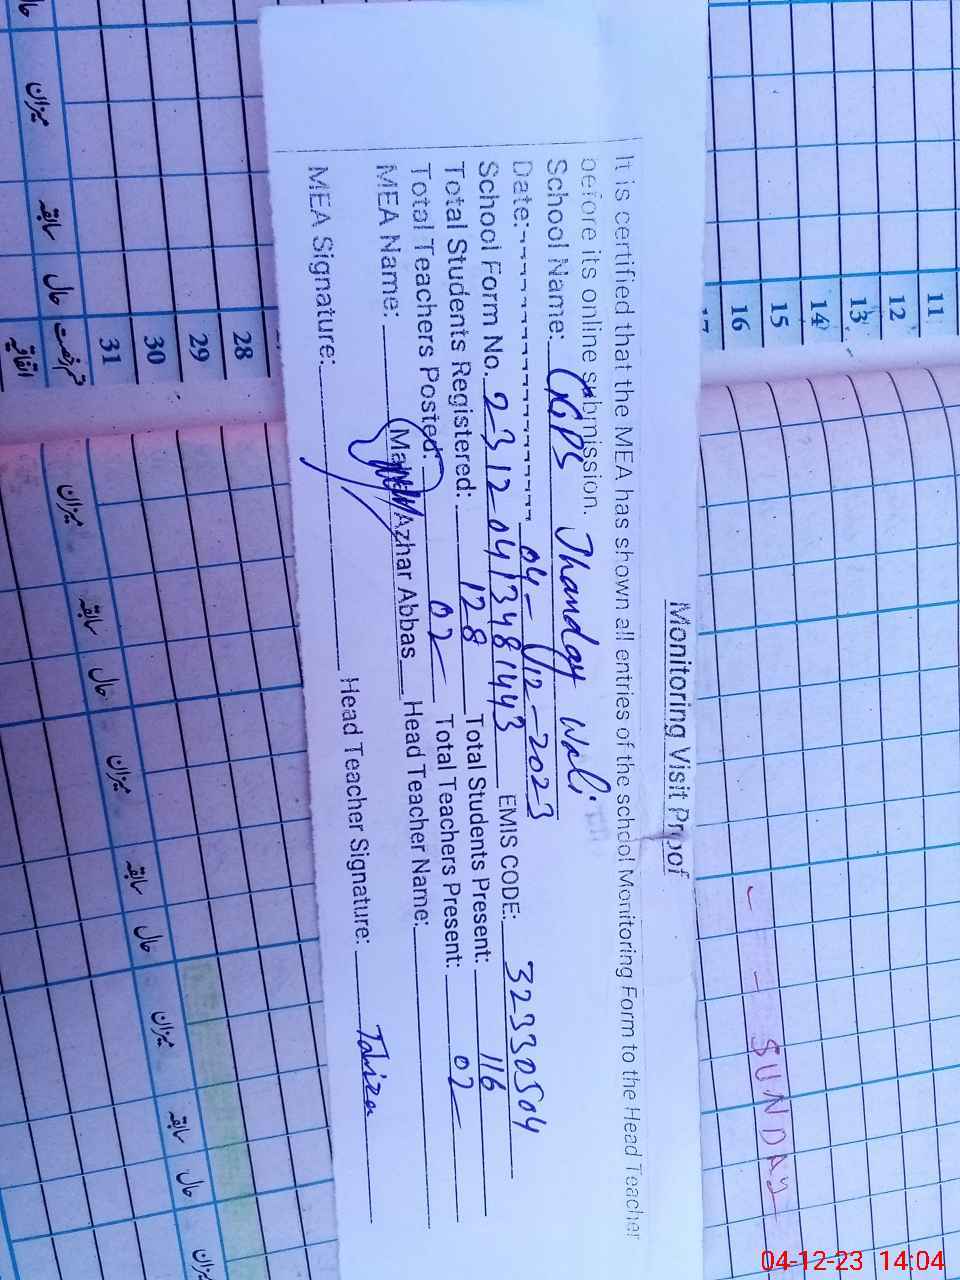 Monitoring Visit Proof
It is certified that the MEA has shown all entries of the school Monitoring Form to the Head Teacher
before its online submission.
School Name: GGPS Jhanday Wali
Date: 04-12-2023
School Form No. 23120413481443 EMIS CODE: 32330504
Total Students Registered: 128 Total Students Present: 116
Total Teachers Posted: 02 Total Teachers Present: 02
MEA Name: Azhar Abbas Head Teacher Name:
MEA Signature: Head Teacher Signature:
11
12
13
14
15
16
17
28
29
30
31
SUNDAY
میزان
سابقہ
حال
میزان
سابقہ
حال
میزان
سابقہ
حال
میزان
سابقہ
حال
میزان
04-12-23 14:04